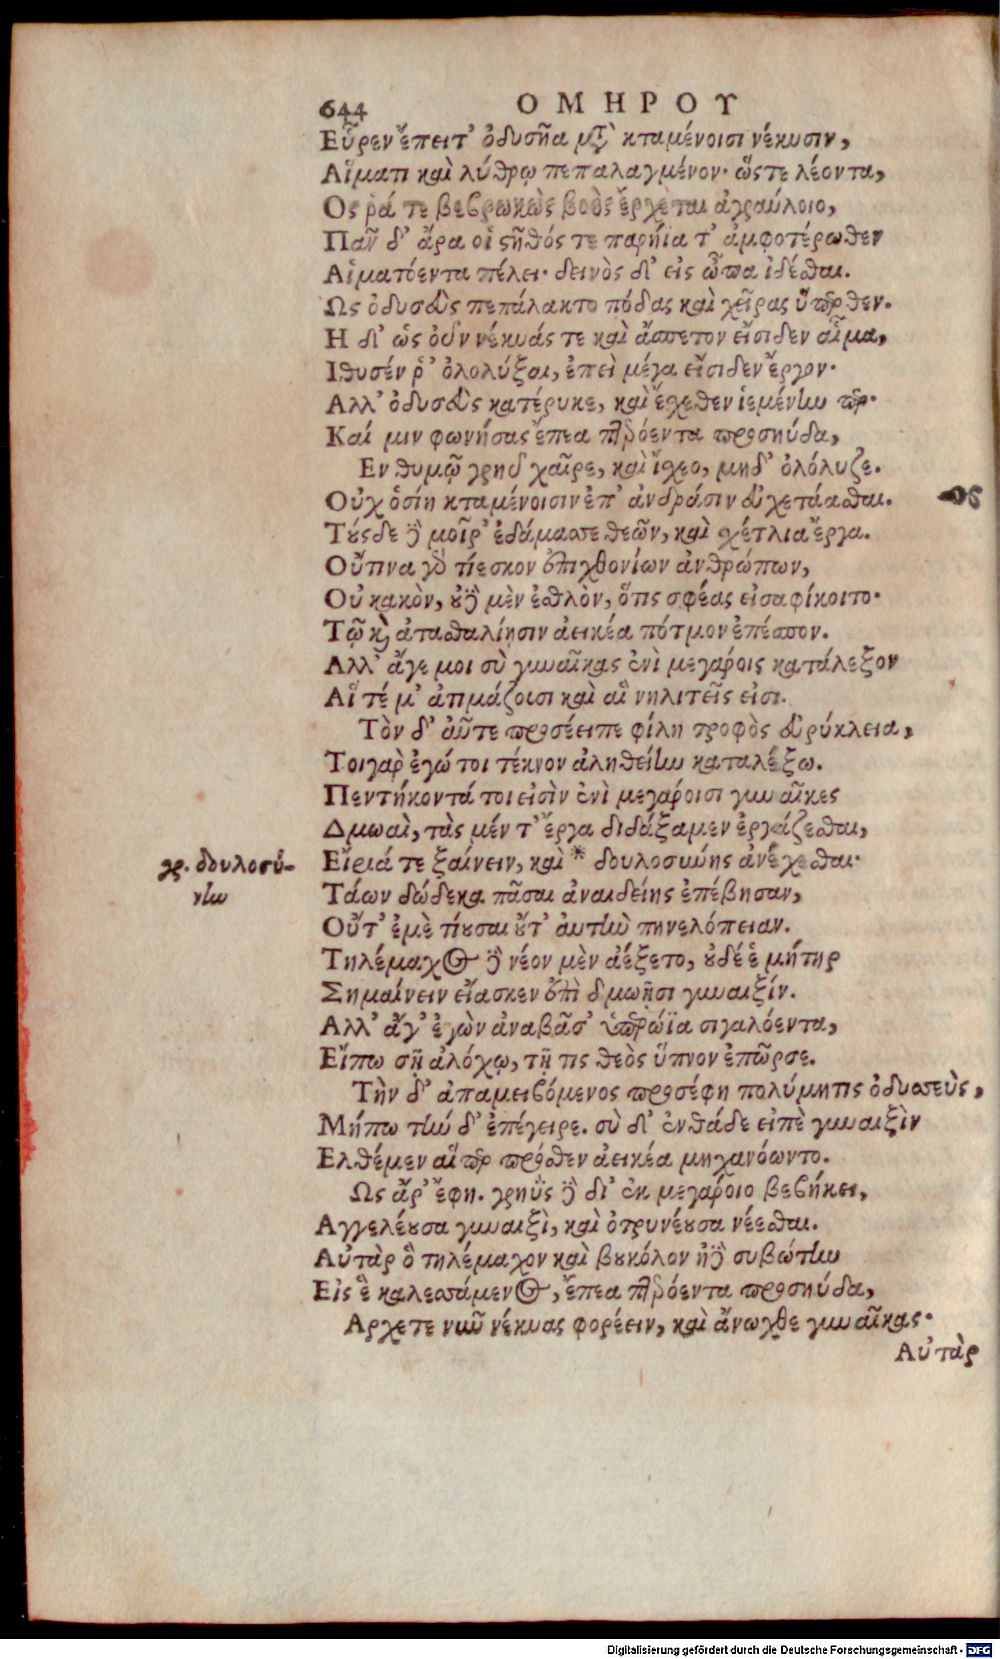 644 ΟΜΗΡΟΥ
Εὗρεν ἔπειτ' ὀδυσῆα μετὰ κταμένοισι νέκυσιν,
Αἵματι καὶ λύθρῳ πεπαλαγμένον· ὥςτε λέοντα,
Ος ῥά τε βεβρωκὼς βοὸς ἔρχεται ἀγραύλοιο,
Πᾶν δ' ἄρα οἱ στῆθός τε παρήϊα τ' ἀμφοτέρωθεν
Αἱματόεντα πέλει· δεινὸς δ' εἰς ὦπα ἰδέσθαι.
Ως ὀδυσεὺς πεπάλακτο πόδας καὶ χεῖρας ὕπερθεν.
Η δ' ὡς οὖν νέκυάς τε καὶ ἄσπετον εἴσιδεν αἷμα,
Ιθυσέν ῥ' ὀλολύξαι, ἐπεὶ μέγα εἴσιδεν ἔργον·
Αλλ' ὀδυσεὺς κατέρυκε, καὶ ἔσχεθεν ἱεμένην περ·
Καί μιν φωνήσας ἔπεα πτερόεντα προσηύδα,
Εν θυμῷ γρηῢ χαῖρε, καὶ ἴσχεο, μηδ' ὀλόλυζε.
Οὐχ ὁσίη κταμένοισιν ἐπ' ἀνδράσιν εὐχετάασθαι.
Τούςδε δὲ μοῖρ' ἐδάμασσε θεῶν, καὶ σχέτλια ἔργα.
Οὔτινα γὰρ τίεσκον ἐπιχθονίων ἀνθρώπων,
Οὐ κακὸν, οὐδὲ μὲν ἐσθλὸν, ὅτις σφέας εἰσαφίκοιτο·
Τῷ καὶ ἀτασθαλίῃσιν ἀεικέα πότμον ἐπέσπον.
Αλλ' ἄγε μοι σὺ γυναῖκας ἐνὶ μεγάροις κατάλεξον
Αἵ τέ μ' ἀτιμάζουσι καὶ αἳ νηλιτεῖς εἰσι.
Τὸν δ' αὖτε προσέειπε φίλη τροφὸς εὐρύκλεια,
Τοιγὰρ ἐγώ τοι τέκνον ἀληθείην καταλέξω.
Πεντήκοντά τοι εἰσὶν ἐνὶ μεγάροισι γυναῖκες
Δμωαὶ, τὰς μέν τ' ἔργα διδάξαμεν ἐργάζεσθαι,
Εἴριά τε ξαίνειν, καὶ * δουλοσύνης ἀνέχεσθαι·
γρ. δουλοσύ-
νην
Τάων δώδεκα πᾶσαι ἀναιδείης ἐπέβησαν,
Οὔτ' ἐμὲ τίουσαι οὔτ' αὐτὴν πηνελόπειαν.
Τηλέμαχος δὲ νέον μὲν ἀέξετο, οὐδέ ἑ μήτηρ
Σημαίνειν εἴασκεν ἐπὶ δμωῇσι γυναιξίν.
Αλλ' ἄγ' ἐγὼν ἀναβᾶσ' ὑπερώϊα σιγαλόεντα,
Εἴπω σῇ ἀλόχῳ, τῇ τις θεὸς ὕπνον ἐπῶρσε.
Τὴν δ' ἀπαμειβόμενος προσέφη πολύμητις ὀδυσσεὺς,
Μήπω τήν δ' ἐπέγειρε. σὺ δ' ἐνθάδε εἰπὲ γυναιξὶν
Ελθέμεν αἵ περ πρόσθεν ἀεικέα μηχανόωντο.
Ως ἄρ' ἔφη. γρηῢς δὲ δι' ἐκ μεγάροιο βεβήκει,
Αγγελέουσα γυναιξὶ, καὶ ὀτρυνέουσα νέεσθαι.
Αὐτὰρ ὃ τηλέμαχον καὶ βουκόλον ἠδὲ συβώτην
Εἰς ἓ καλεσσάμενος, ἔπεα πτερόεντα προσηύδα,
Αρχετε νῦν νέκυας φορέειν, καὶ ἄνωχθε γυναῖκας·
Αὐτὰρ
Digitalisierung gefördert durch die Deutsche Forschungsgemeinschaft - DFG